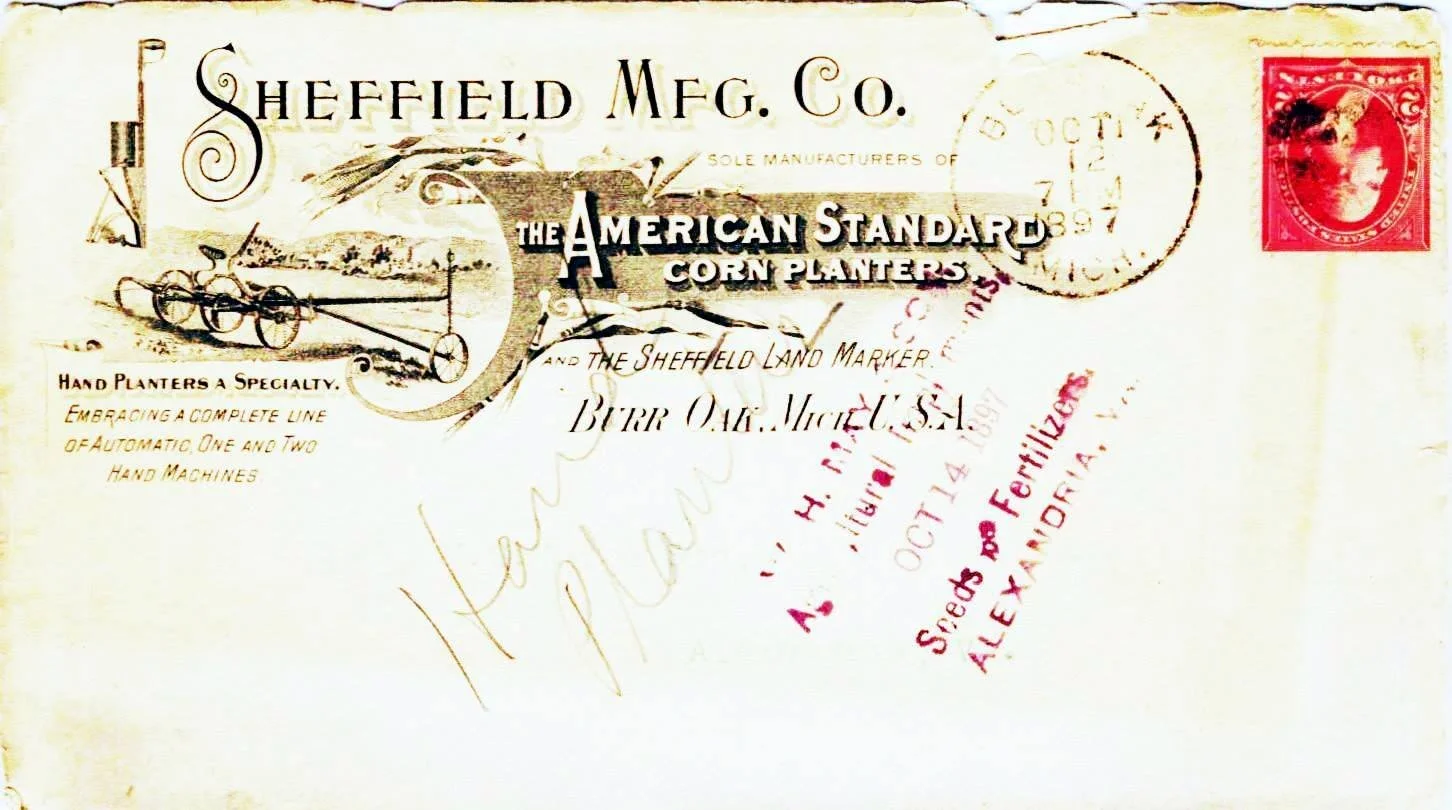 SHEFFIELD MFG. CO.
SOLE MANUFACTURERS OF
THE AMERICAN STANDARD
CORN PLANTERS.
AND THE SHEFFIELD LAND MARKER.
BURR OAK, MICH. U.S.A.
HAND PLANTERS A SPECIALTY.
EMBRACING A COMPLETE LINE
OF AUTOMATIC, ONE AND TWO
HAND MACHINES.
OCT
12
1897
MICH.
2 2
UNITED STATES POSTAGE
Hand
Planter
H. MAY CO
OCT 14 1897
Seeds Fertilizers,
ALEXANDRIA,